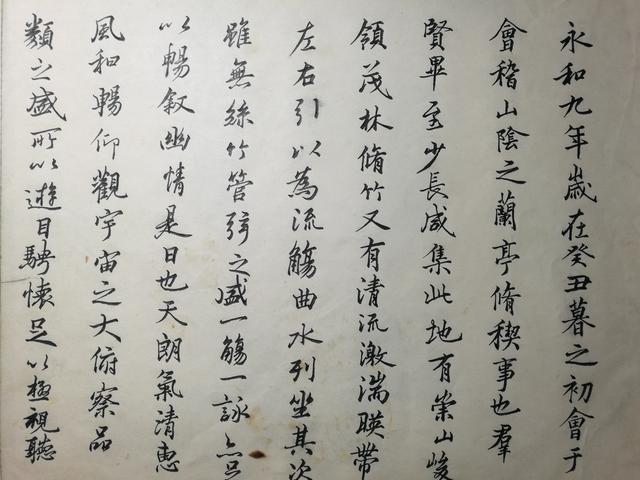 永和九年歲在癸丑暮之初會于
會稽山陰之蘭亭脩稧事也羣
賢畢至少長咸集此地有崇山峻
領茂林脩竹又有清流激湍暎帶
左右引以為流觴曲水列坐其次
雖無絲竹管弦之盛一觴一詠亦足
以暢叙幽情是日也天朗氣清惠
風和暢仰觀宇宙之大俯察品
類之盛所以遊目騁懷足以極視聽